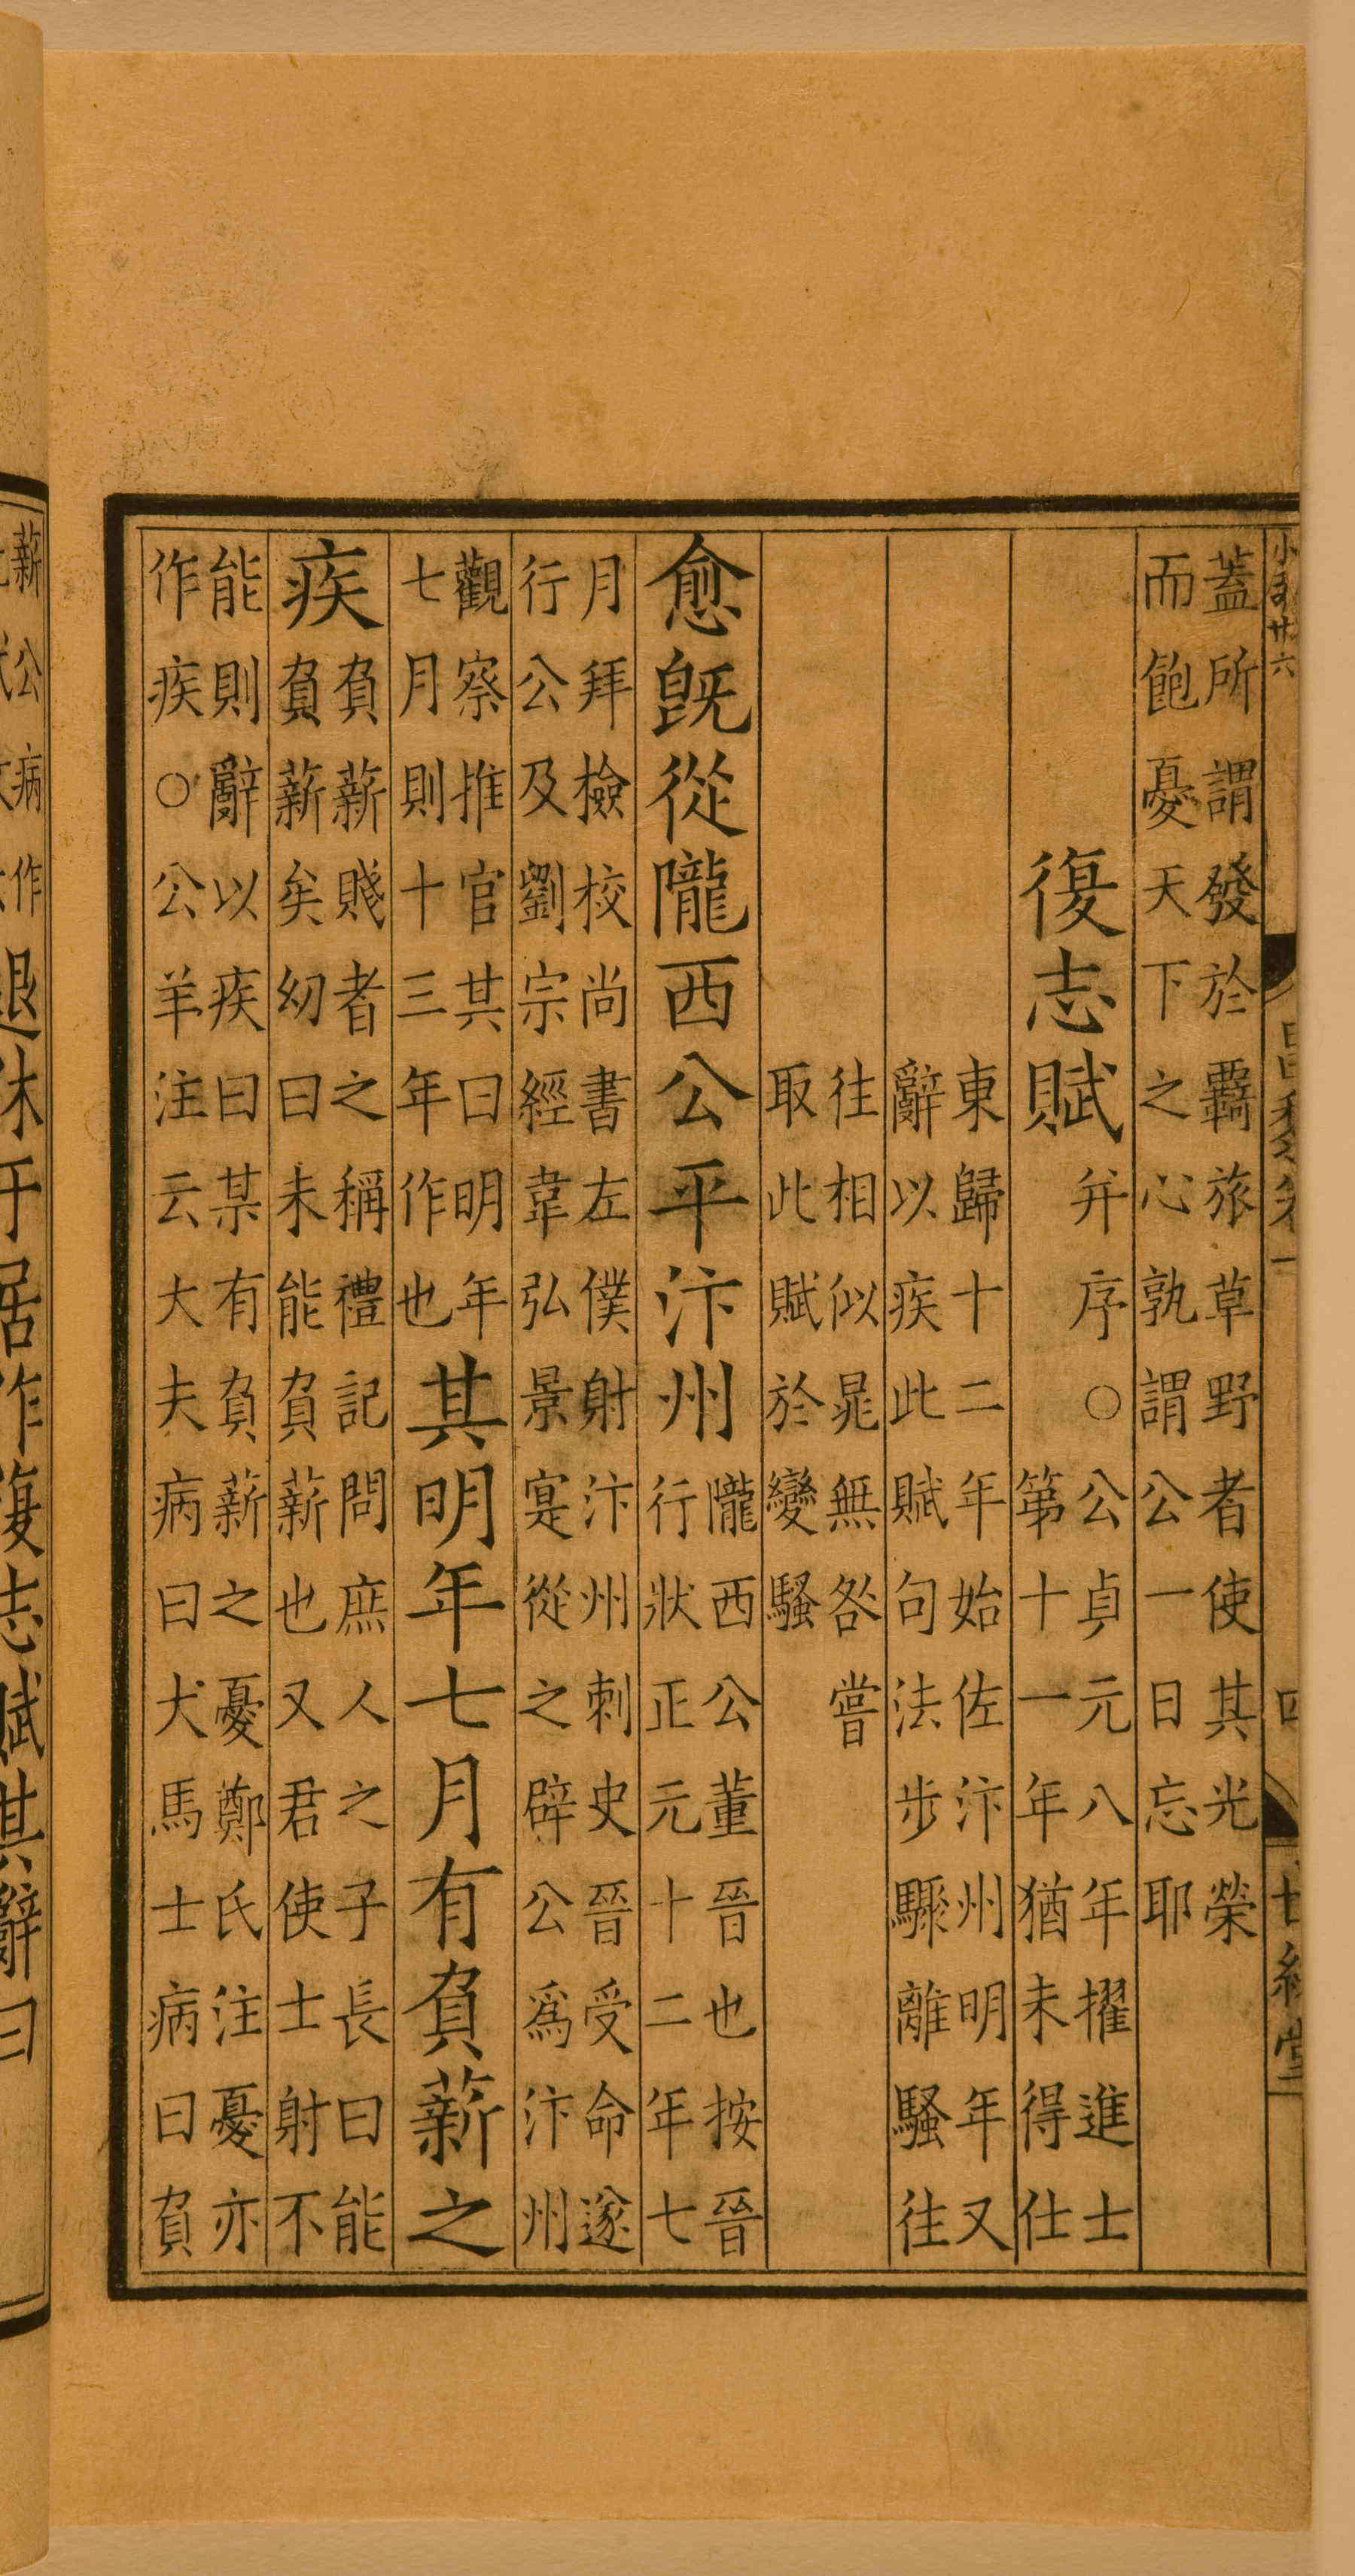 蓋所謂發於羈旅草野者使其光榮
而飽憂天下之心孰謂公一日忘耶
復志賦
并序○公貞元八年擢進士
第十一年猶未得仕
東歸十二年始佐汴州明年又
辭以疾此賦句法步驟離騷往
往相似晁無咎嘗
取此賦於變騷
愈旣從隴西公平汴州
隴西公董晉也按晉
行狀正元十二年七
月拜檢校尚書左僕射汴州刺史晉受命遂
行公及劉宗經韋弘景寔從之辟公爲汴州
觀察推官其曰明年
七月則十三年作也
其明年七月有負薪之
疾
負薪賤者之稱禮記問庶人之子長曰能
負薪矣幼曰未能負薪也又君使士射不
能則辭以疾曰某有負薪之憂鄭氏注憂亦
作疾○公羊注云大夫病曰犬馬士病曰負
薪公病作
退休于居作復志賦其辭曰